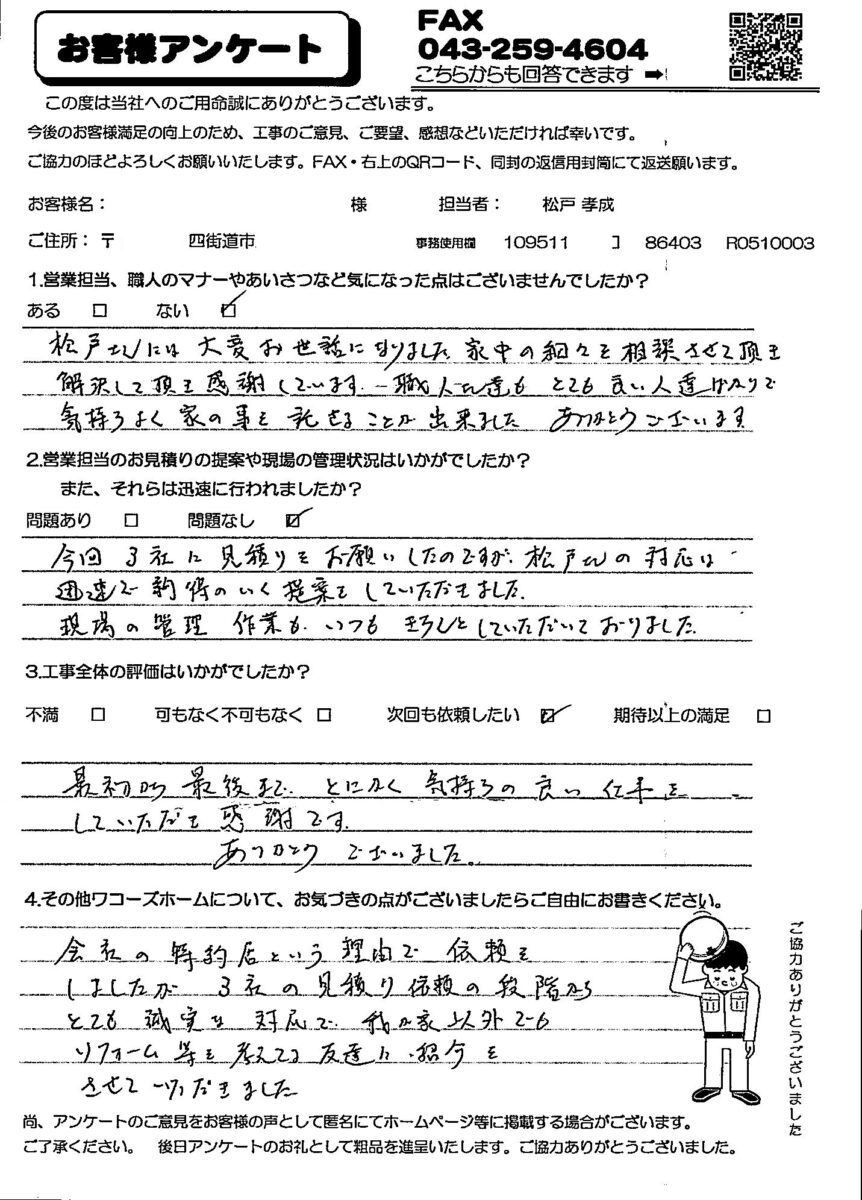 お客様アンケート
FAX
043-259-4604
こちらからも回答できます ➡
この度は当社へのご用命誠にありがとうございます。
今後のお客様満足の向上のため、工事のご意見、ご要望、感想などいただければ幸いです。
ご協力のほどよろしくお願いいたします。FAX・右上のQRコード、同封の返信用封筒にて返送願います。
お客様名： 様 担当者： 松戸 孝成
ご住所：〒 四街道市 事務使用欄 109511 コ 86403 R0510003
1.営業担当、職人のマナーやあいさつなど気になった点はございませんでしたか？
ある □ ない ☑
松戸さんには 大変お世話になりました 家中の細々を相談させて頂き
解決して頂き感謝しています。職人さん達も とても良い人達ばかりで
気持ちよく家の事を託せることが出来ました ありがとうございます
2.営業担当のお見積りの提案や現場の管理状況はいかがでしたか？
また、それらは迅速に行われましたか？
問題あり □ 問題なし ☑
今回3社に見積りをお願いしたのですが、松戸さんの対応は
迅速で納得のいく提案をしていただきました。
現場の管理 作業も いつも きちんとしていただいておりました
3.工事全体の評価はいかがでしたか？
不満 □ 可もなく不可もなく □ 次回も依頼したい ☑ 期待以上の満足 □
最初から最後まで とにかく気持ちの良い仕事を
していただき感謝です。
ありがとうございました。
4.その他ワコーズホームについて、お気づきの点がございましたらご自由にお書きください。
会社の特約店という理由で依頼を
しましたが 3社の見積り依頼の段階から
とても誠実な対応で 我が家以外でも
リフォーム等を考えてる友達に紹介を
させて いただきました
ご協力ありがとうございました
尚、アンケートのご意見をお客様の声として匿名にてホームページ等に掲載する場合がございます。
ご了承ください。 後日アンケートのお礼として粗品を進呈いたします。ご協力ありがとうございました。